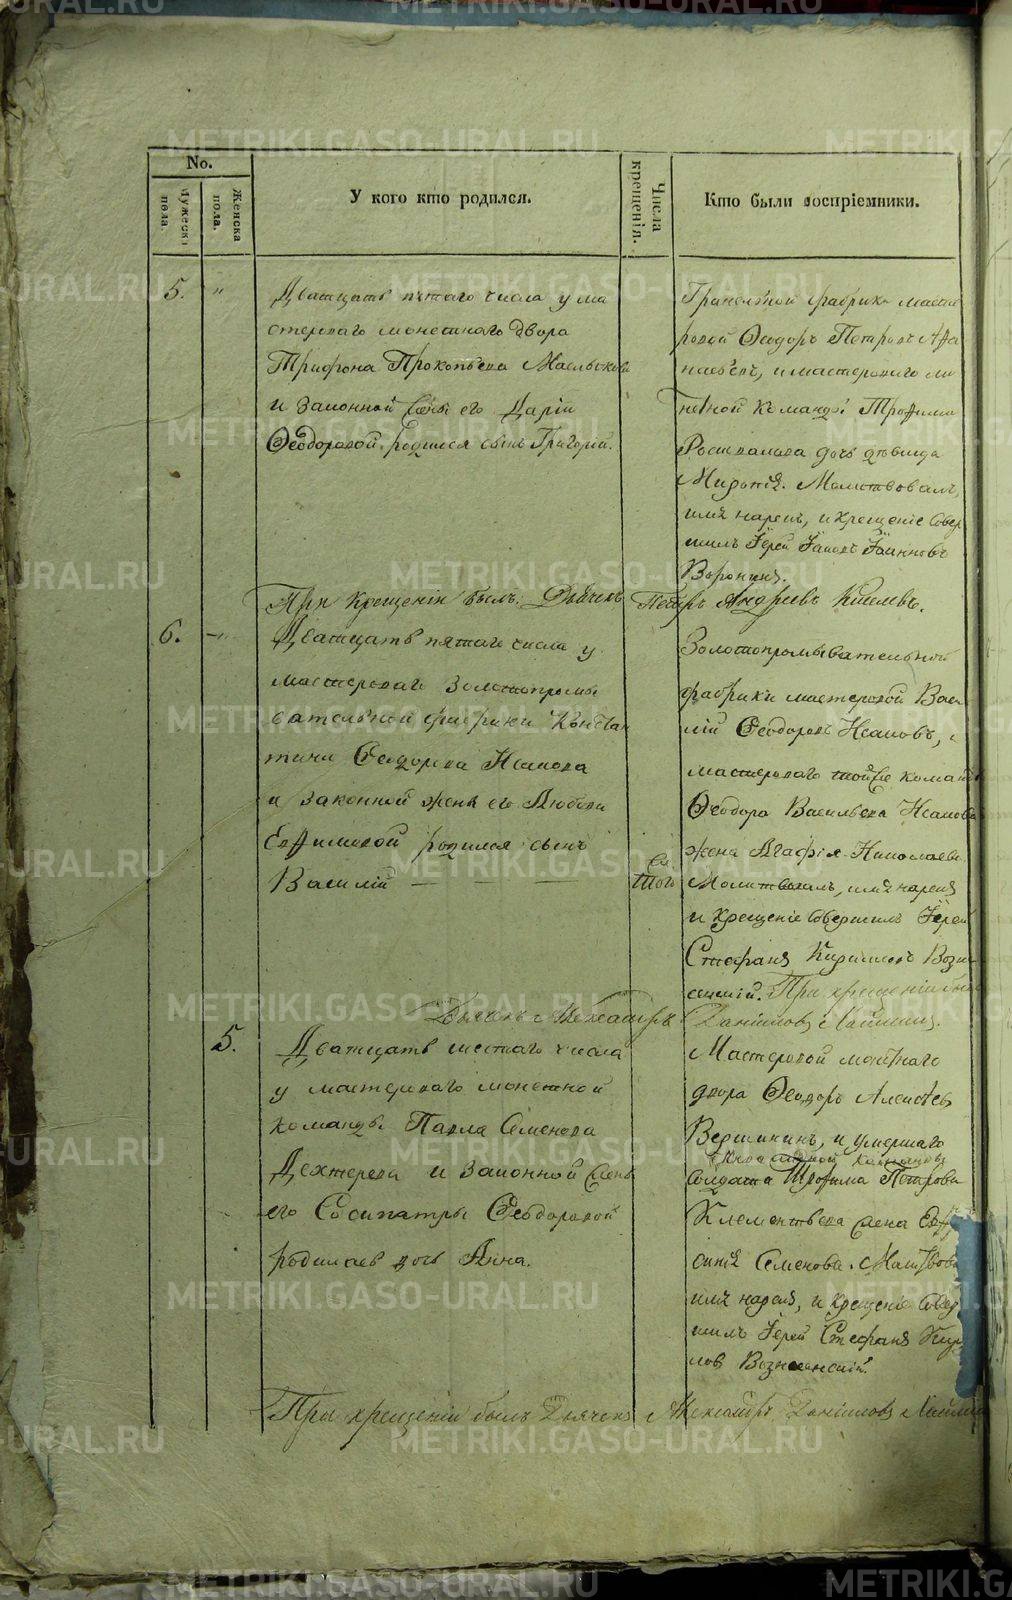 No.
Мужеска пола.
Женска пола.
У кого кто родился.
Числа крещенія.
Кто были воспріемники.
5. "
Дватцать пятаго числа у ма
стероваго монетнаго двора
Трифона Прокопьева
и законной жены его Даріи
Ѳеодоровой, родился сынъ Григорій.
фабрики масте
ровой Ѳеодоръ Петровъ Афа
насьевъ, и мастероваго
команды Трофима
дочь девица
Молитвовалъ,
имя нарекъ, и крещеніе совер
шилъ Іерей Іаковъ Іоанновъ
Воронинъ.
При крещеніи былъ Дьячекъ Петръ Андреевъ Киселевъ.
6. "
Дватцать пятаго числа у
мастероваго золотопромы
вательной фабрики Констан
тина Ѳеодорова Исакова
и законной жены его Любови
Евфимовой родился сынъ
Василій
Золотопромывательной
фабрики мастеровой Васи
лій Ѳеодоровъ Исаковъ, и
мастероваго тойже команды
Ѳеодора Васильева Исакова
жена Агафія Николаева.
Молитвовалъ, имя нарекъ
и крещеніе совершилъ Іерей
Стефанъ Кирилловъ Возне
сенскій. При крещеніи былъ
Дьячекъ Александръ Даниловъ
5.
Дватцать шестаго числа
у мастероваго монетной
команды Павла Семенова
Дехтерева и законной жены
его Сосипатры Ѳеодоровой
родилась дочь Анна.
Мастеровой монетнаго
двора Ѳеодоръ Алексеевъ
Вершининъ, и умершаго
команды
солдата Трофима Петрова
Клементьева жена Евфро
синія Семенова. Молитвовалъ
имя нарекъ, и крещеніе совер
шилъ Іерей Стефанъ Кири
ловъ Вознесенскій.
При крещеніи былъ Дьячекъ Александръ Даниловъ
METRIKI.GASO-URAL.RU